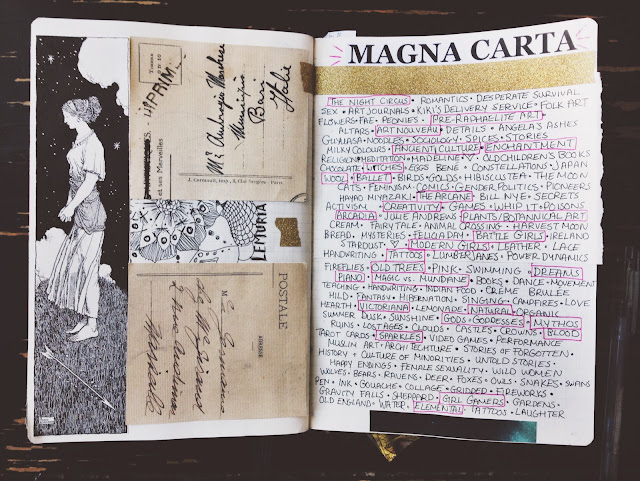 IMPRIMÉ
Mr Ambrogio
Municipio
Bari
Italie
J. Cormault, imp., 5, Cité Bergère - Paris
et ses Merveilles
LEMURIA
POSTALE
MAGNA CARTA
THE NIGHT CIRCUS • ROMANTICS • DESPERATE SURVIVAL
SEX • ART JOURNALS • KIKI'S DELIVERY SERVICE • FOLK ART
FLOWERS • FAE • PEONIES • PRE-RAPHAELITE ART
ALTARS • ART NOUVEAU • DETAILS • ANGELA'S ASHES
GUYLIASA • NOODLES • SOCIOLOGY • SPICES • STORIES
MILKY COLOURS • ANCIENT CULTURE • ENCHANTMENT
RELIGION • MEDITATION • MADELINE • OLD CHILDREN'S BOOKS
CHOCOLATE • WITCHES • EGGS BENE • CONSTELLATIONS • JAPAN
WOOL • BALLET • BIRDS • GOLDS • HIBISCUS TEA • THE MOON
CATS • FEMINISM • COMICS • GENDER POLITICS • PIONEERS
HAYAO MIYAZAKI • THE ARCANE • BILL NYE • SECRETS
ACTIVISM • CREATIVITY • GAMES • WHIP IT • POISONS
ARCADIA • JULIE ANDREWS • PLANTS/BOTANNICAL ART
CREAM • FAIRYTALE • ANIMAL CROSSING • HARVEST MOON
BREAD • MYSTERIES • FELICIA DAY • BATTLE GIRLS • IRELAND
STARDUST • MODERN GIRLS • LEATHER • LACE
HANDWRITING • TATTOOS • LUMBERJANES • POWER DYNAMICS
FIREFLIES • OLD TREES • PINK • SWIMMING • DREAMS
PIANO • MAGIC VS. MUNDANE • BOOKS • DANCE • MOVEMENT
TEACHING • HANDWRITING • INDIAN FOOD • CREME BRULEE
HILD • FANTASY • HIBERNATION • SINGING • CAMPFIRES • LOVE
HEARTH • VICTORIANA • LEMONADE • NATURAL • ORGANIC
SUMMER DUSK • SUNSHINE • GODS + GODDESSES • MYTHOS
RUINS • LOST AGES • CLOUDS • CASTLES • CROWNS • BLOOD
TAROT CARDS • SPARKLES • VIDEO GAMES • PERFORMANCE
MUSLIM ART + ARCHITECTURE • STORIES OF FORGOTTEN
HISTORY + CULTURE OF MINORITIES • UNTOLD STORIES •
HAPPY ENDINGS • FEMALE SEXUALITY • WILD WOMEN
WOLVES • BEARS • RAVENS • DEER • FOXES • OWLS • SNAKES • SWANS
PEN + INK • GOUACHE • COLLAGE • GRIDDED • FIREWORKS •
GRAVITY FALLS • SHEPPARD • GIRL GAMERS • GARDENS •
OLD ENGLAND • WATER • ELEMENTAL • TATTOOS • LAUGHTER